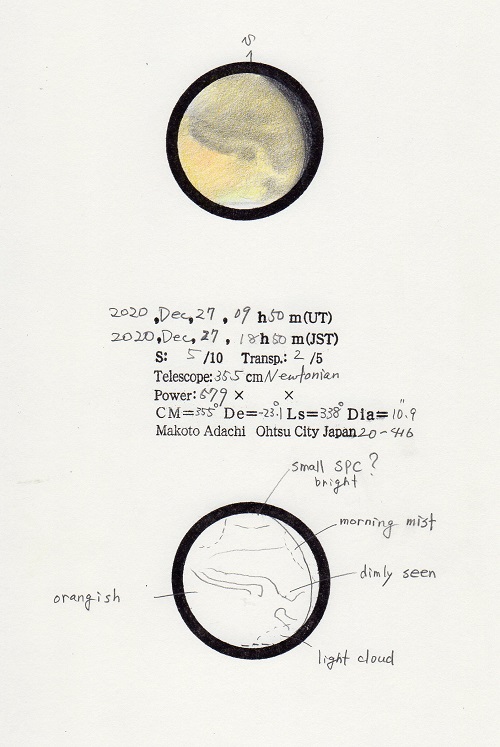 S
2020, Dec, 27, 09 h 50 m (UT)
2020, Dec, 27, 18 h 50 m (JST)
S: 5 /10 Transp.: 2 /5
Telescope: 355 cm Newtonian
Power: 679 × ×
CM=355° De=-23.1° Ls=338° Dia=10.9"
Makoto Adachi Ohtsu City Japan 20-416
small SPC?
bright
morning mist
dimly seen
orangish
light cloud